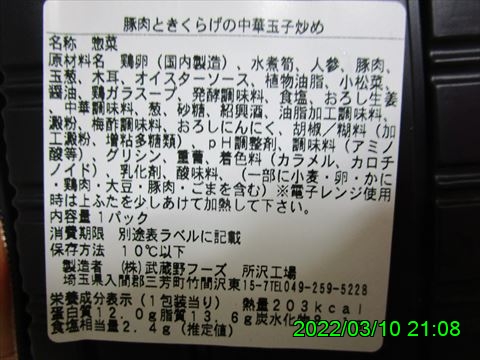 豚肉ときくらげの中華玉子炒め
名称 惣菜
原材料名 鶏卵(国内製造)、水煮筍、人参、豚肉、
玉葱、木耳、オイスターソース、植物油脂、小松菜、
醤油、鶏ガラスープ、発酵調味料、食塩、おろし生姜
、中華調味料、葱、砂糖、紹興酒、油脂加工調味料、
澱粉、梅酢調味料、おろしにんにく、胡椒/糊料(加
工澱粉、増粘多糖類)、pH調整剤、調味料(アミノ
酸等)、グリシン、重曹、着色料(カラメル、カロチ
ノイド)、乳化剤、酸味料、(一部に小麦・卵・かに
・鶏肉・大豆・豚肉・ごまを含む)※電子レンジ使用
時は上ふたを少しあけて加熱して下さい。
内容量 1パック
消費期限 別途表ラベルに記載
保存方法 10℃以下
製造者 (株)武蔵野フーズ 所沢工場
埼玉県入間郡三芳町竹間沢東15-7TEL049-259-5228
栄養成分表示(1包装当り) 熱量203kcal
蛋白質12.0g脂質13.6g炭水化物
食塩相当量2.4g(推定値)
2022/03/10 21:08